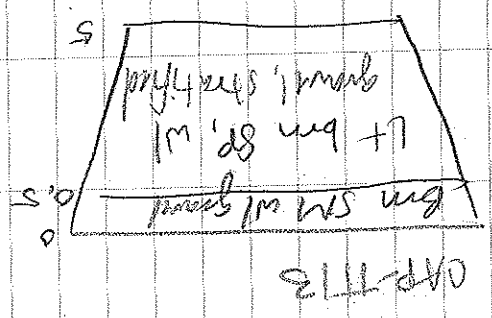 CAP-TT13
0
Brn SM w/ gravel
0.5
Lt brn SP, w/
gravel, stratified
5